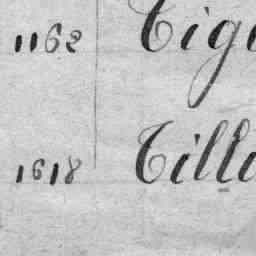 1162 Tige
1618 Tille